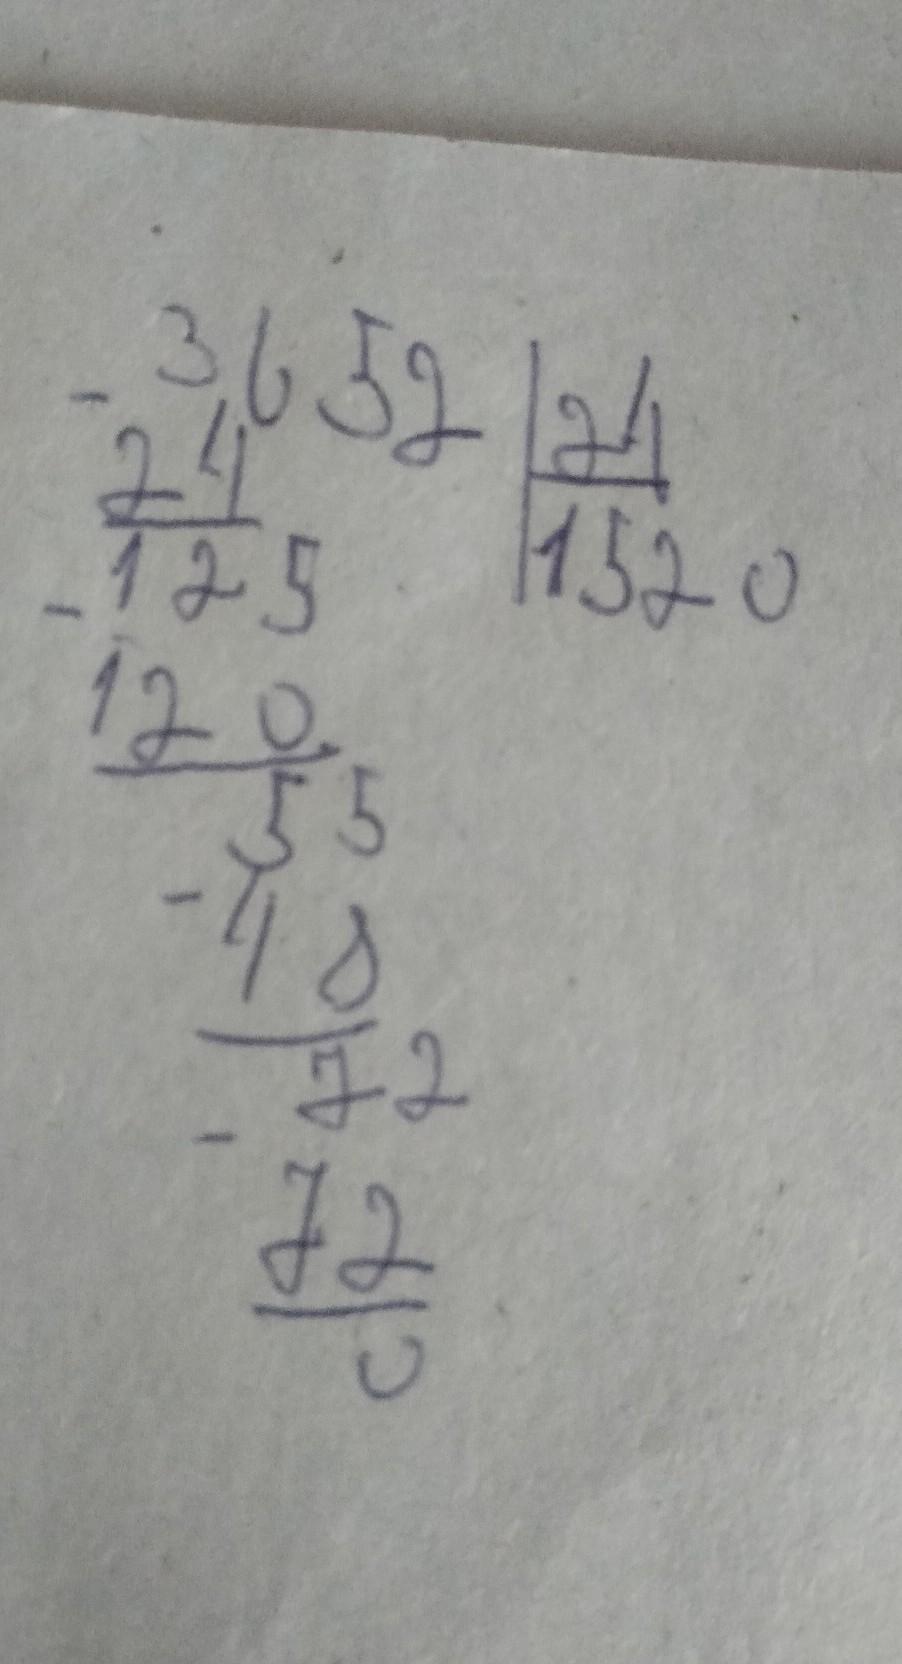 - 3652 | 24
24 | 1520
- 125
120
55
- 48
72
- 72
0